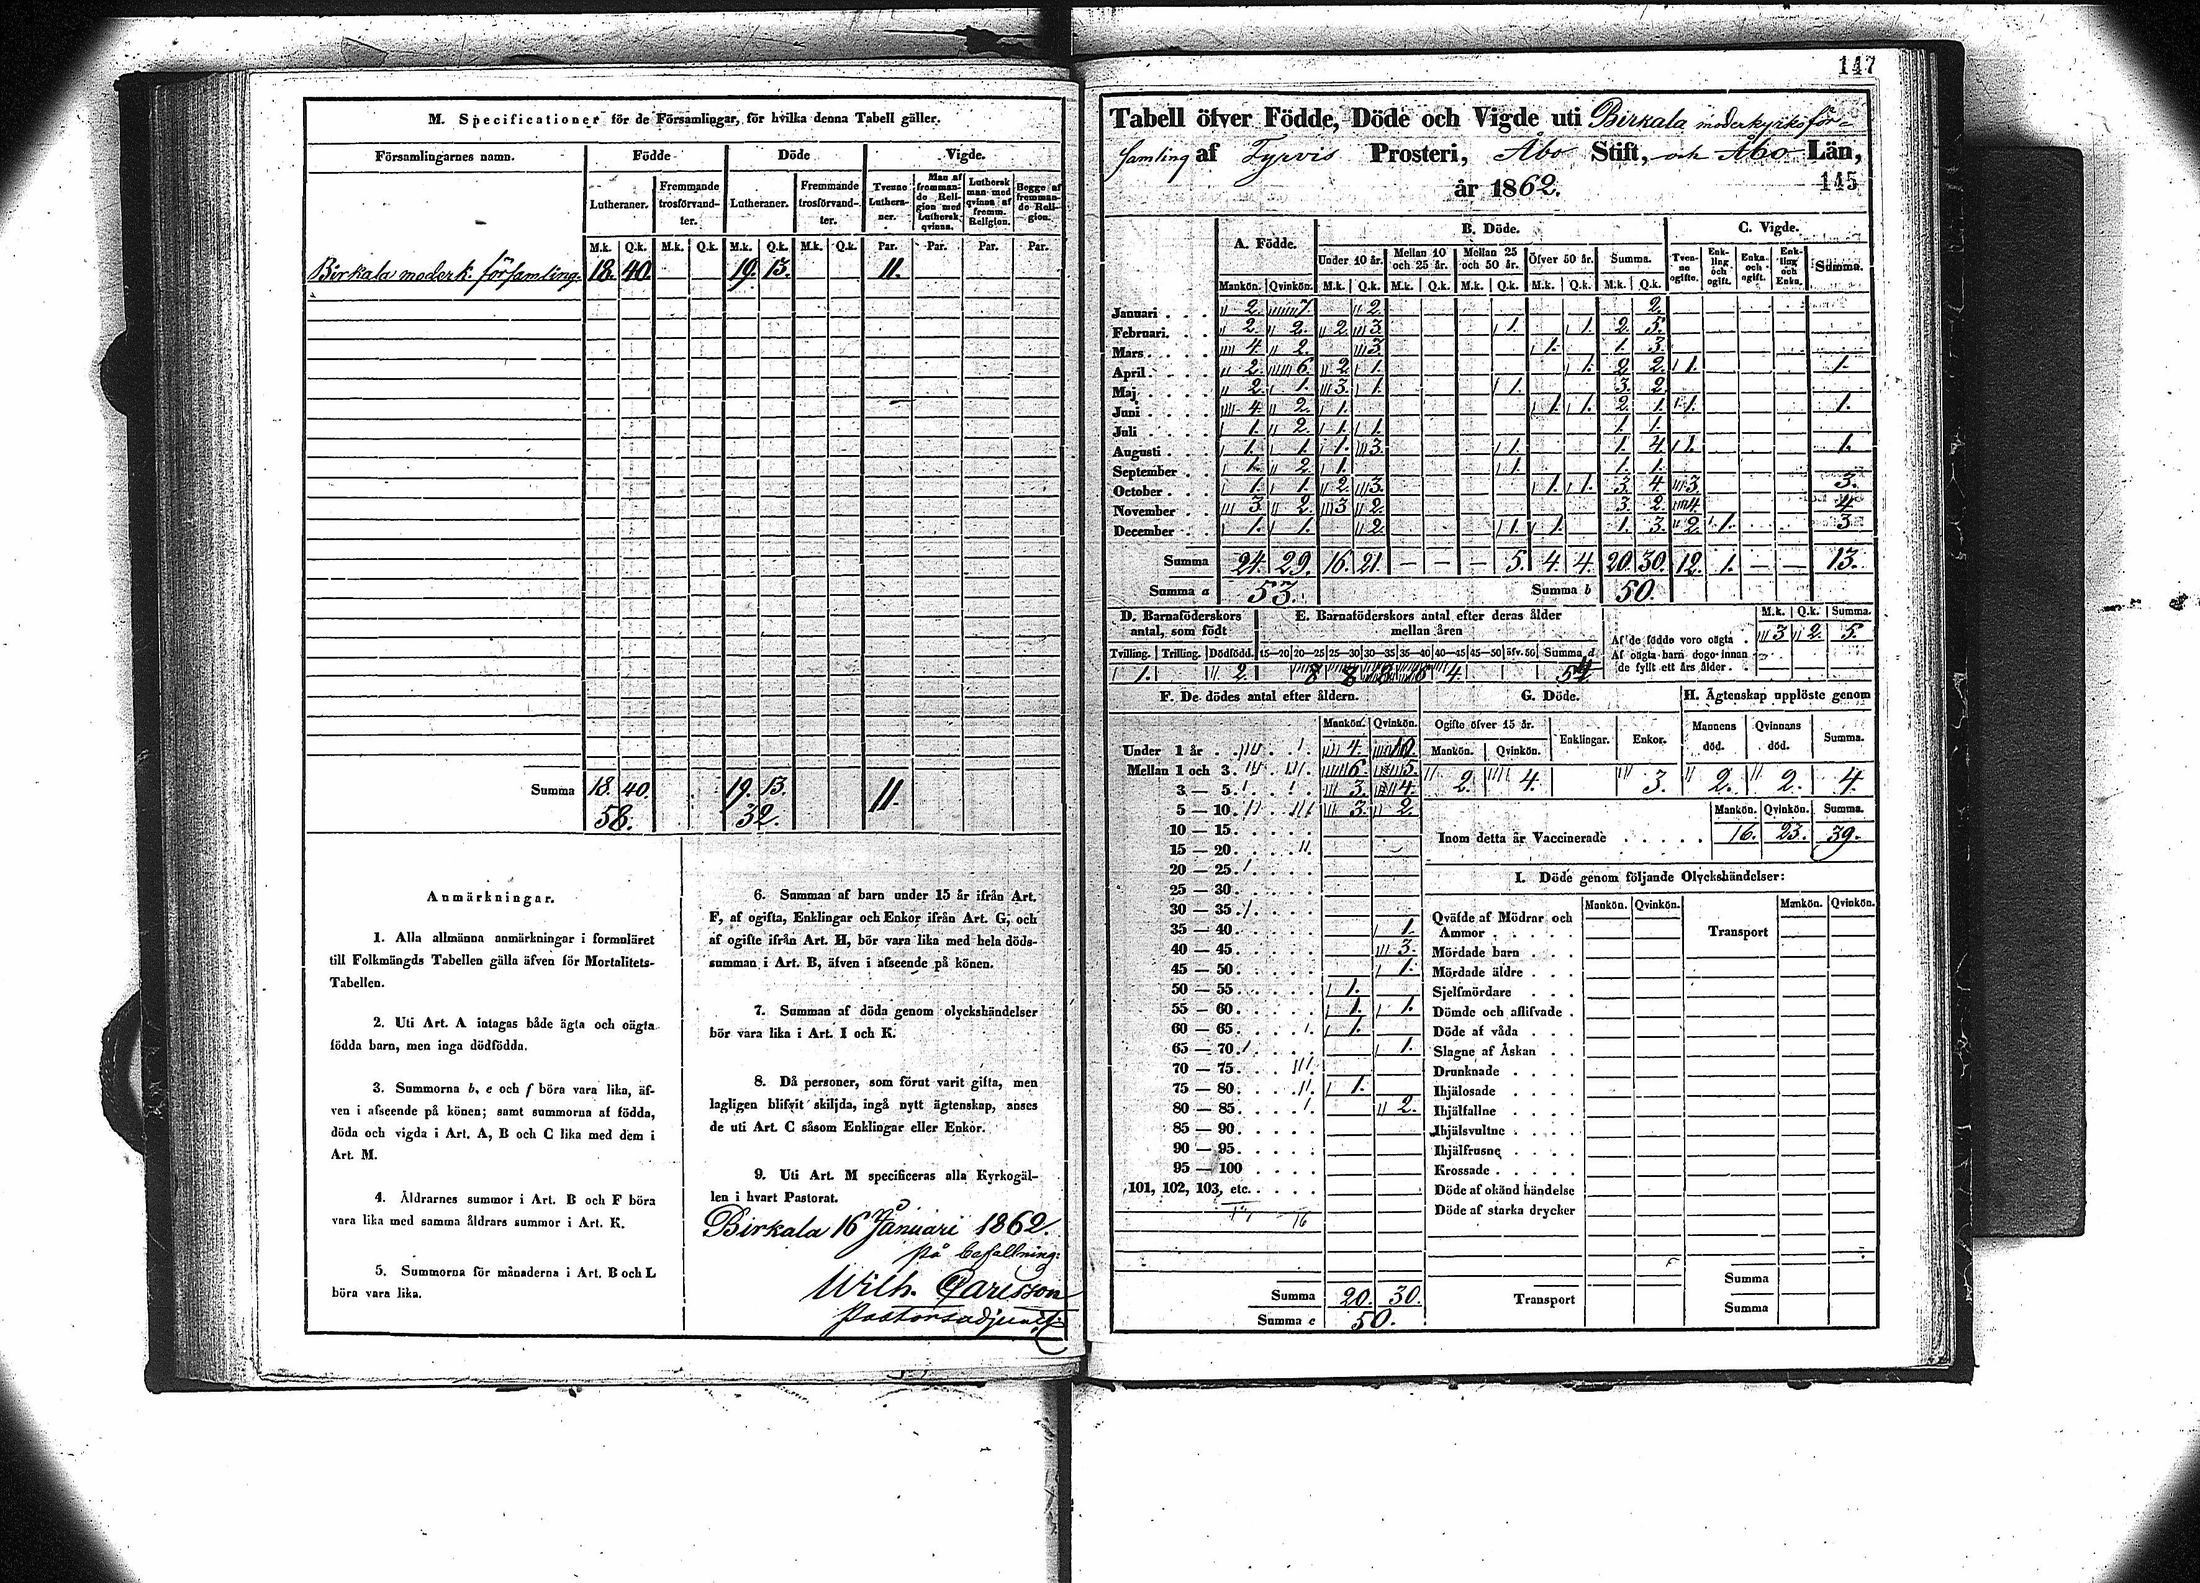 M. Specificationer för de Församlingar, för hvilka denna Tabell gäller.
Församlingarnes namn. Födde Döde Vigde.
Lutheraner. Fremmande trosförvandter. Lutheraner. Fremmande trosförvandter. Tvenne Lutheraner. Man af fremmande Religion med Luthersk qvinna. Luthersk man med qvinna af fremm. Religion. Begge af fremmande Religion.
M.k. Q.k. M.k. Q.k. M.k. Q.k. M.k. Q.k. Par. Par. Par. Par.
Birkala moderk. församling. 18. 40. 19. 13. 11.
Summa 18. 40. 19. 13. 11.
58. 32.
Anmärkningar.
1. Alla allmänna anmärkningar i formuläret
till Folkmängds Tabellen gälla äfven för Mortalitets-
Tabellen.
2. Uti Art. A intagas både ägta och oägta
födda barn, men inga dödfödda.
3. Summorna b, c och f böra vara lika, äf-
ven i afseende på könen; samt summorna af födda,
döda och vigda i Art. A, B och C lika med dem i
Art. M.
4. Åldrarnes summor i Art. B och F böra
vara lika med samma åldrars summor i Art. K.
5. Summorna för månaderna i Art. B och L
böra vara lika.
6. Summan af barn under 15 år ifrån Art.
F, af ogifta, Enklingar och Enkor ifrån Art. G, och
af ogifte ifrån Art. H, bör vara lika med hela döds-
summan i Art. B, äfven i afseende på könen.
7. Summan af döda genom olyckshändelser
bör vara lika i Art. I och K.
8. Då personer, som förut varit gifta, men
lagligen blifvit skiljda, ingå nytt ägtenskap, anses
de uti Art. C såsom Enklingar eller Enkor.
9. Uti Art. M specificeras alla Kyrkogäl-
len i hvart Pastorat.
Birkala 16 Januari 1862.
På befallning:
Wilh. Carlsson
Pastorsadjunct
147
Tabell öfver Födde, Döde och Vigde uti Birkala moderkyrkoför-
samling af Tyrvis Prosteri, Åbo Stift, och Åbo Län,
år 1862. 145
A. Födde. B. Döde. C. Vigde.
Under 10 år. Mellan 10 och 25 år. Mellan 25 och 50 år. Öfver 50 år. Summa. Tvenne ogifte. Enkling och ogift. Enka och ogift. Enkling och Enka. Summa.
Mankön. Qvinkön. M.k. Q.k. M.k. Q.k. M.k. Q.k. M.k. Q.k. M.k. Q.k.
Januari 2. 7. 2. 2.
Februari. 2. 2. 2. 3. 1. 1. 2. 5.
Mars 4. 2. 3. 1. 1. 3.
April 2. 6. 2. 1. 1. 2. 2. 1. 1.
Maj 2. 1. 3. 1. 1. 3. 2.
Juni 4. 2. 1. 1. 1. 2. 1. 1. 1.
Juli 1. 2. 1. 1. 1. 1.
Augusti 1. 1. 1. 3. 1. 1. 4. 1. 1.
September 1. 2. 1. 1. 1. 1.
October 1. 1. 2. 3. 1. 1. 3. 4. 3. 3.
November 3. 2. 3. 2. 3. 2. 4 4
December 1. 1. 2. 1. 1. 1. 3. 2. 1. 3
Summa 24. 29. 16. 21. — — — 5. 4. 4. 20. 30. 12. 1. — — 13.
Summa a 53. Summa b 50.
D. Barnaföderskors antal, som födt
Tvilling. Trilling. Dödfödd.
1. 2.
E. Barnaföderskors antal efter deras ålder mellan åren
15—20 20—25 25—30 30—35 35—40 40—45 45—50 öfv. 50 Summa d
8 4.
M.k. Q.k. Summa.
Af de födde voro oägta 3 2. 5.
Af oägta barn dogo innan de fyllt ett års ålder.
F. De dödes antal efter åldern.
Mankön. Qvinkön.
Under 1 år 4. 10.
Mellan 1 och 3. 6. 5.
3 — 5. 3. 4.
5 — 10. 3. 2.
10 — 15.
15 — 20.
20 — 25.
25 — 30.
30 — 35.
35 — 40. 1.
40 — 45. 3.
45 — 50. 1.
50 — 55. 1.
55 — 60. 1. 1.
60 — 65. 1.
65 — 70. 1.
70 — 75.
75 — 80. 1.
80 — 85. 2.
85 — 90.
90 — 95.
95 — 100
101, 102, 103, etc.
16
Summa 20. 30.
Summa c 50.
G. Döde.
Ogifte öfver 15 år. Enklingar. Enkor.
Mankön. Qvinkön.
2. 4. 3.
H. Ägtenskap upplöste genom
Mannens död. Qvinnans död. Summa.
2. 2. 4.
Mankön. Qvinkön. Summa.
Inom detta år Vaccinerade 16. 23. 39.
I. Döde genom följande Olyckshändelser:
Mankön. Qvinkön. Mankön. Qvinkön.
Qväfde af Mödrar och Ammor Transport
Mördade barn
Mördade äldre
Sjelfmördare
Dömde och aflifvade
Döde af våda
Slagne af Åskan
Drunknade
Ihjälosade
Ihjälfallne
Ihjälsvultne
Ihjälfrusne
Krossade
Döde af okänd händelse
Döde af starka drycker
Summa
Transport Summa